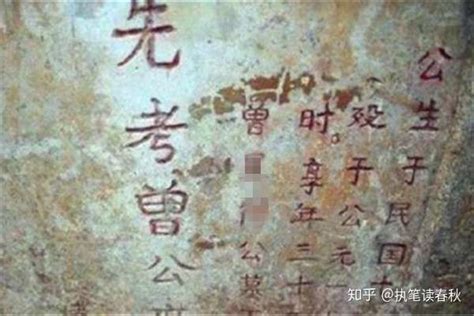 公生于民国
殁于公元一
时。享年三十
曾公
先考曾公
知乎 @执笔读春秋